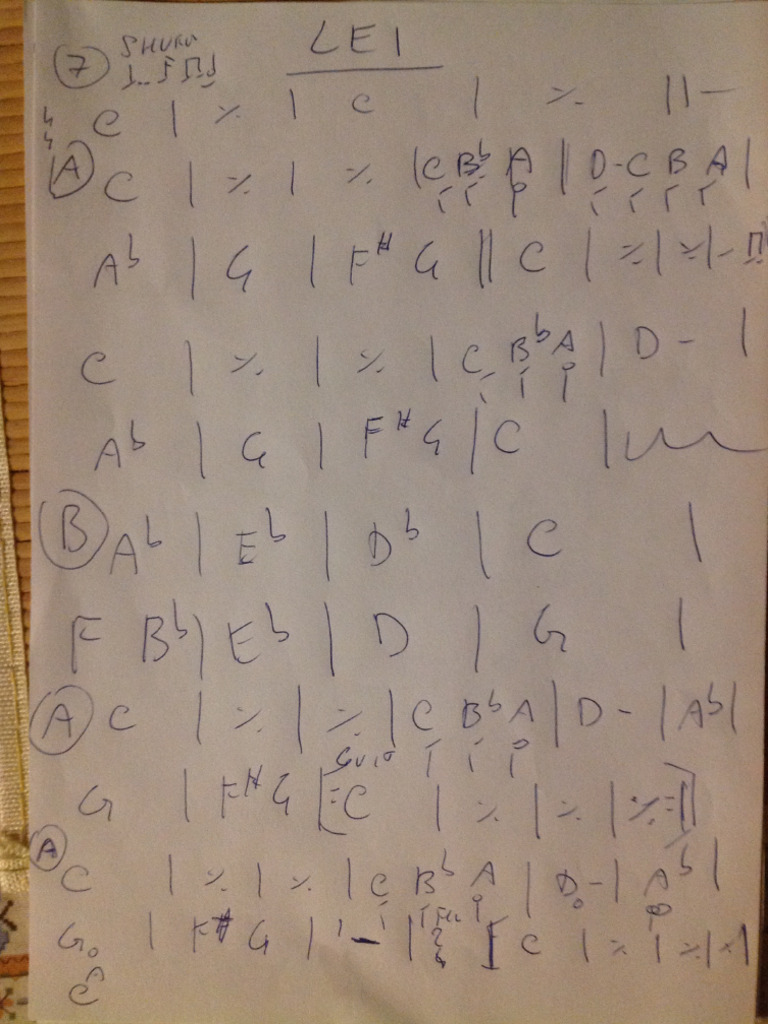 ⑦ LEI
4 4 C | ٪ | C | ٪ ||
Ⓐ C | ٪ | ٪ | C B♭ A || D- C B A |
A♭ | G | F# G || C | ٪ | ٪ |
C | ٪ | ٪ | C B♭ A | D- |
A♭ | G | F# G | C |
Ⓑ A♭ | E♭ | D♭ | C |
F B♭ | E♭ | D | G |
Ⓐ C | ٪ | ٪ | C B♭ A | D- | A♭ |
G | F# G [: C | ٪ | ٪ | ٪ :]
Ⓐ C | ٪ | ٪ | C B♭ A | D- | A♭ |
G | F# G | - | [ C | ٪ | ٪ | ٪ |
C